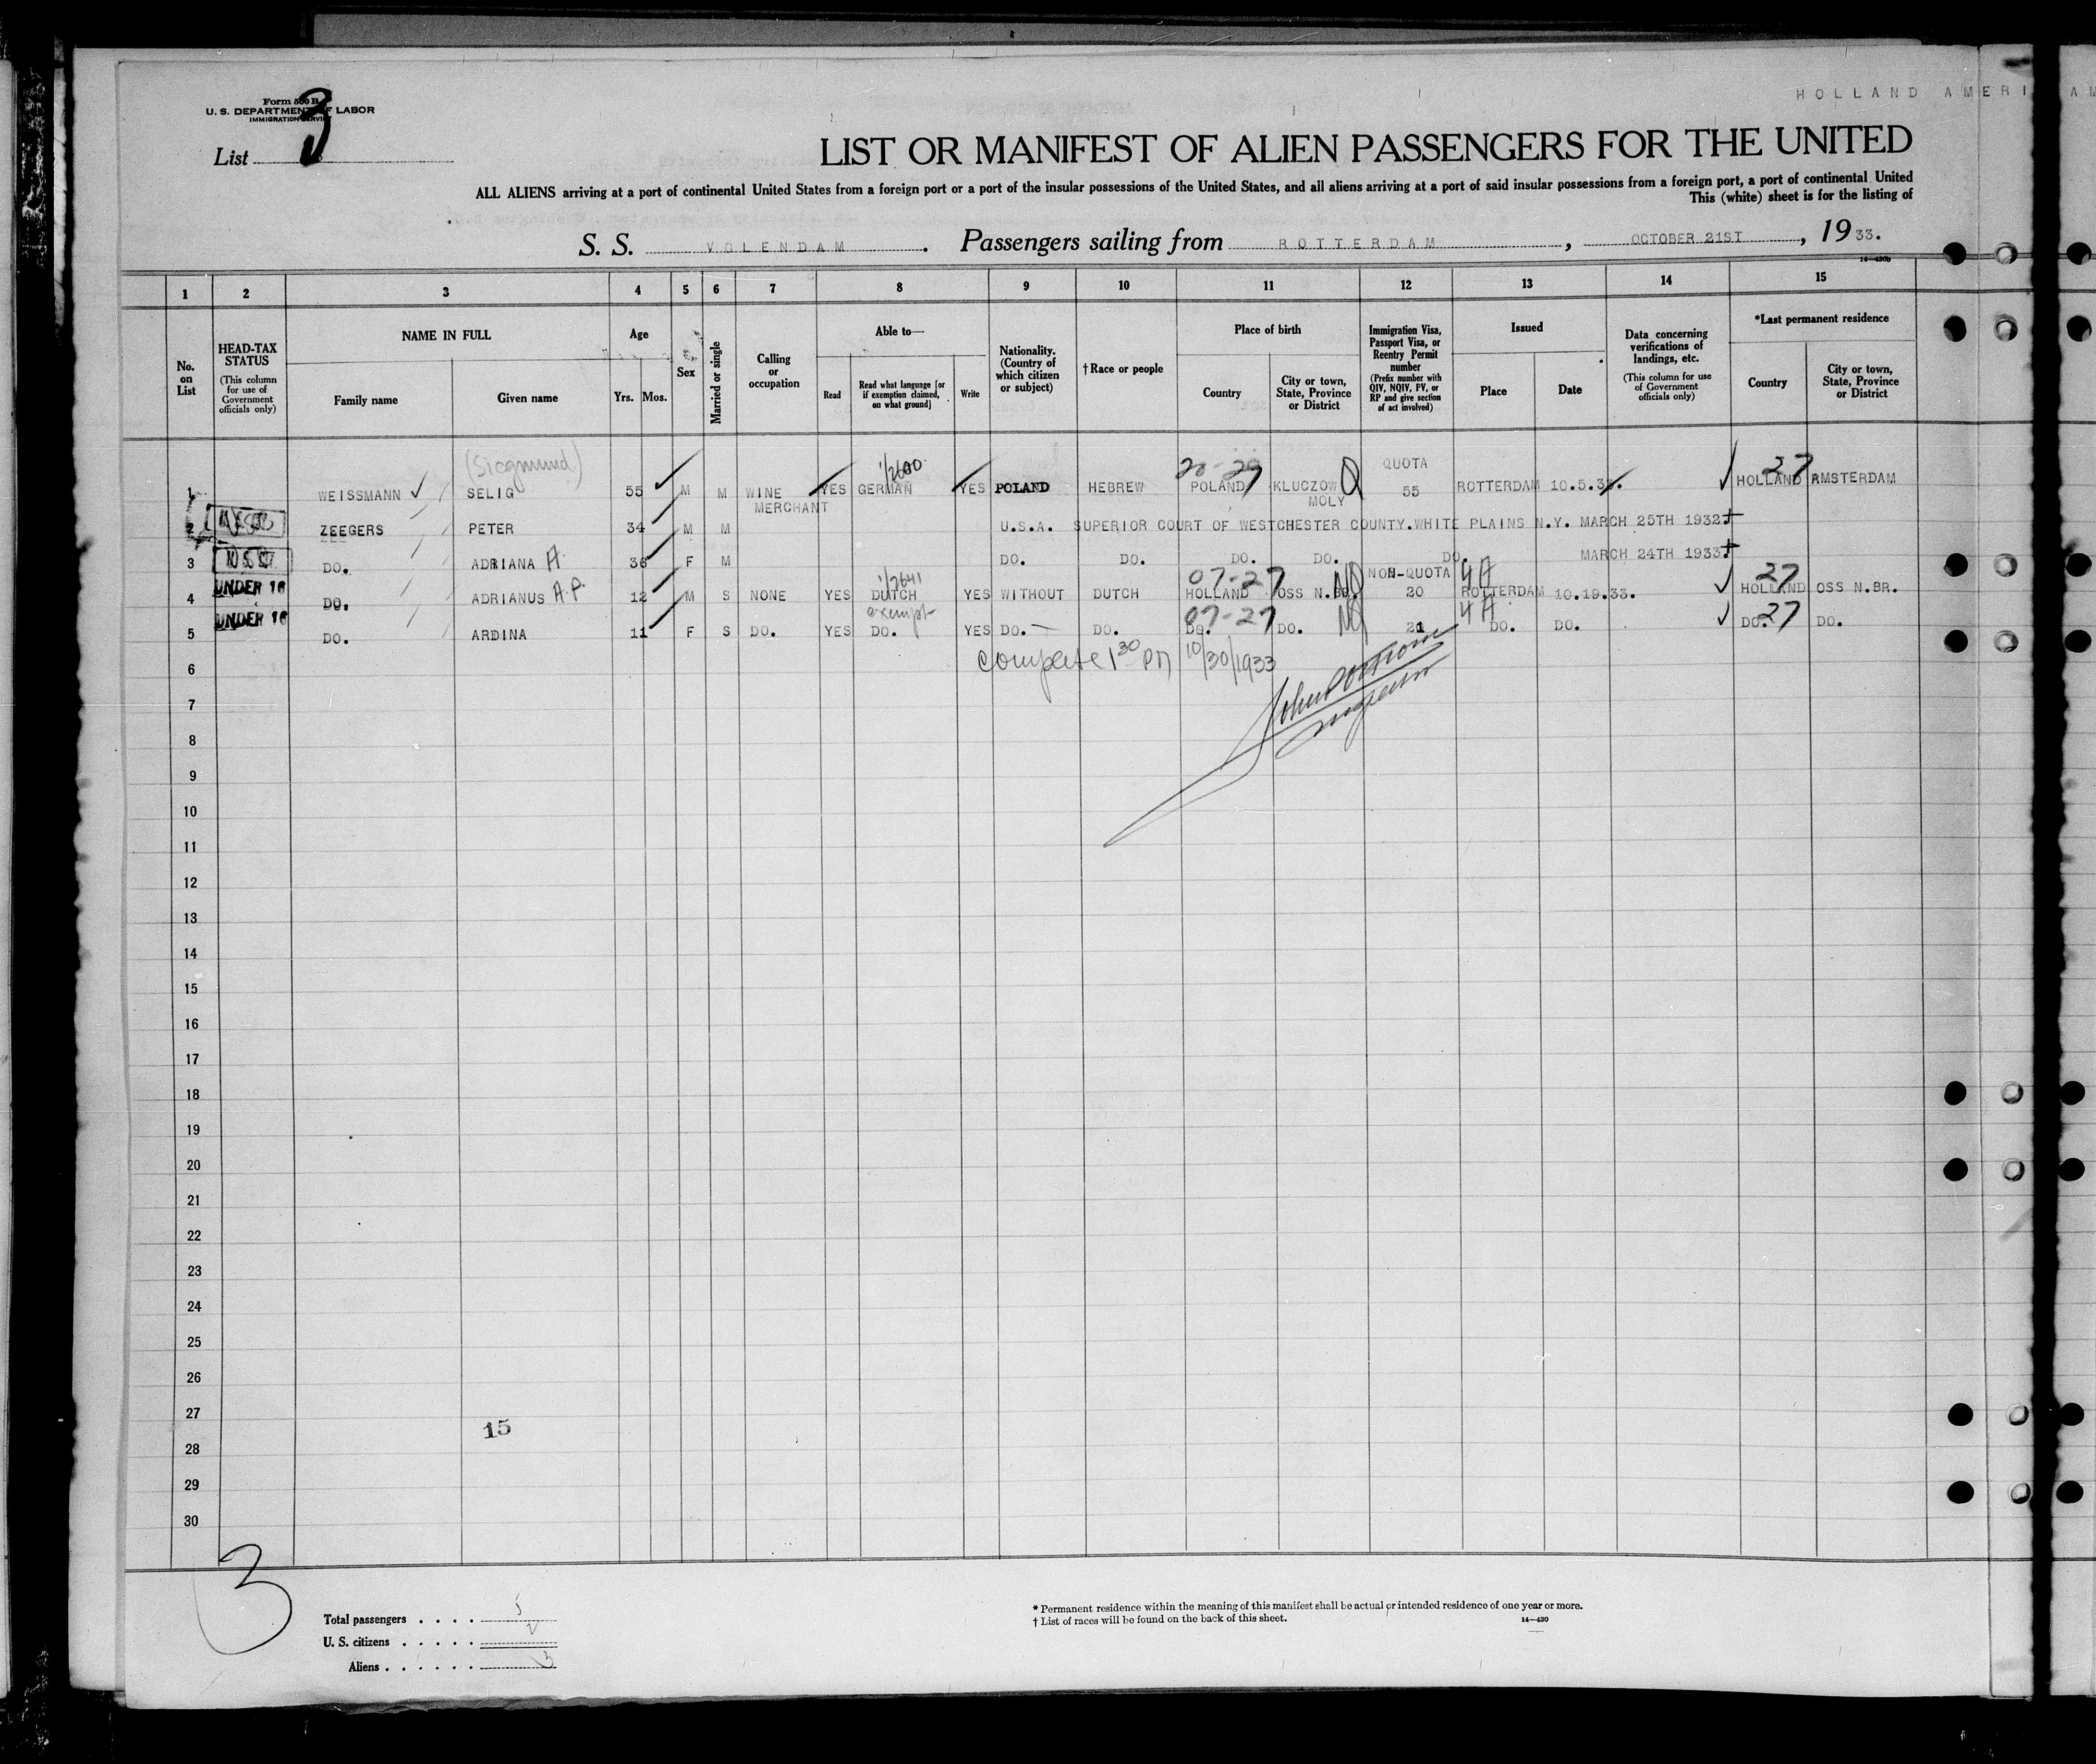 HOLLAND AMERI
Form 500 B
U. S. DEPARTMENT OF LABOR
IMMIGRATION SERVICE
List 3
LIST OR MANIFEST OF ALIEN PASSENGERS FOR THE UNITED
ALL ALIENS arriving at a port of continental United States from a foreign port or a port of the insular possessions of the United States, and all aliens arriving at a port of said insular possessions from a foreign port, a port of continental United
This (white) sheet is for the listing of
S. S. VOLENDAM. Passengers sailing from ROTTERDAM, OCTOBER 21ST, 1933.
1 2 3 4 5 6 7 8 9 10 11 12 13 14 15
No. on List
HEAD-TAX STATUS
(This column for use of Government officials only)
NAME IN FULL
Family name
Given name
Age
Yrs. Mos.
Sex
Married or single
Calling or occupation
Able to—
Read
Read what language [or if exemption claimed, on what ground]
Write
Nationality. (Country of which citizen or subject)
†Race or people
Place of birth
Country
City or town, State, Province or District
Immigration Visa, Passport Visa, or Reentry Permit number
(Prefix number with QIV, NQIV, PV, or RP and give section of act involved)
Issued
Place
Date
Data concerning verifications of landings, etc.
(This column for use of Government officials only)
*Last permanent residence
Country
City or town, State, Province or District
(Siegmund) 20-29 QUOTA 27
1 WEISSMANN SELIG 55 M M WINE YES GERMAN YES POLAND HEBREW POLAND KLUCZOW Q 55 ROTTERDAM 10.5.33. HOLLAND AMSTERDAM
MERCHANT MOLY
2 ZEEGERS PETER 34 M M U.S.A. SUPERIOR COURT OF WESTCHESTER COUNTY.WHITE PLAINS N.Y. MARCH 25TH 1932.
3 DO. ADRIANA A. 36 F M DO. DO. DO. DO. DO. MARCH 24TH 1933.
UNDER 16 1/2641 07-27 NQ NON-QUOTA 4A 27
4 DO. ADRIANUS A.P. 12 M S NONE YES DUTCH YES WITHOUT DUTCH HOLLAND OSS N.BR. 20 ROTTERDAM 10.19.33. HOLLAND OSS N.BR.
UNDER 16 exempt 07-27 NQ 4A 27
5 DO. ARDINA 11 F S DO. YES DO. YES DO. DO. DO. DO. 21 DO. DO. DO. DO.
6 complete 1 30 PM 10/30/1933
7
8
9
10
11
12
13
14
15
16
17
18
19
20
21
22
23
24
25
26
27
15
28
29
30
3
Total passengers . . . . 5
U. S. citizens . . . . . 2
Aliens . . . . . . 3
* Permanent residence within the meaning of this manifest shall be actual or intended residence of one year or more.
† List of races will be found on the back of this sheet. 14—430